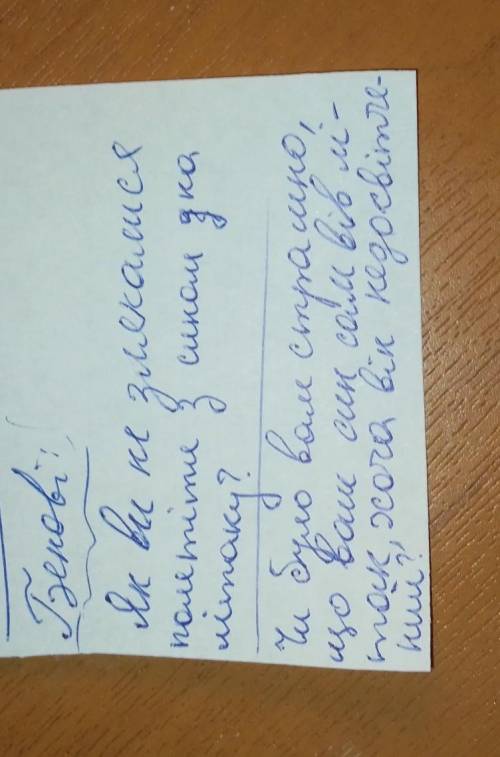 Бенові:
Як ви не злякалися
полетіти з сином на
літаку?
Чи було вам страшно,
що ваш син сам вів лі-
так, хоча він недосвітче-
ний?